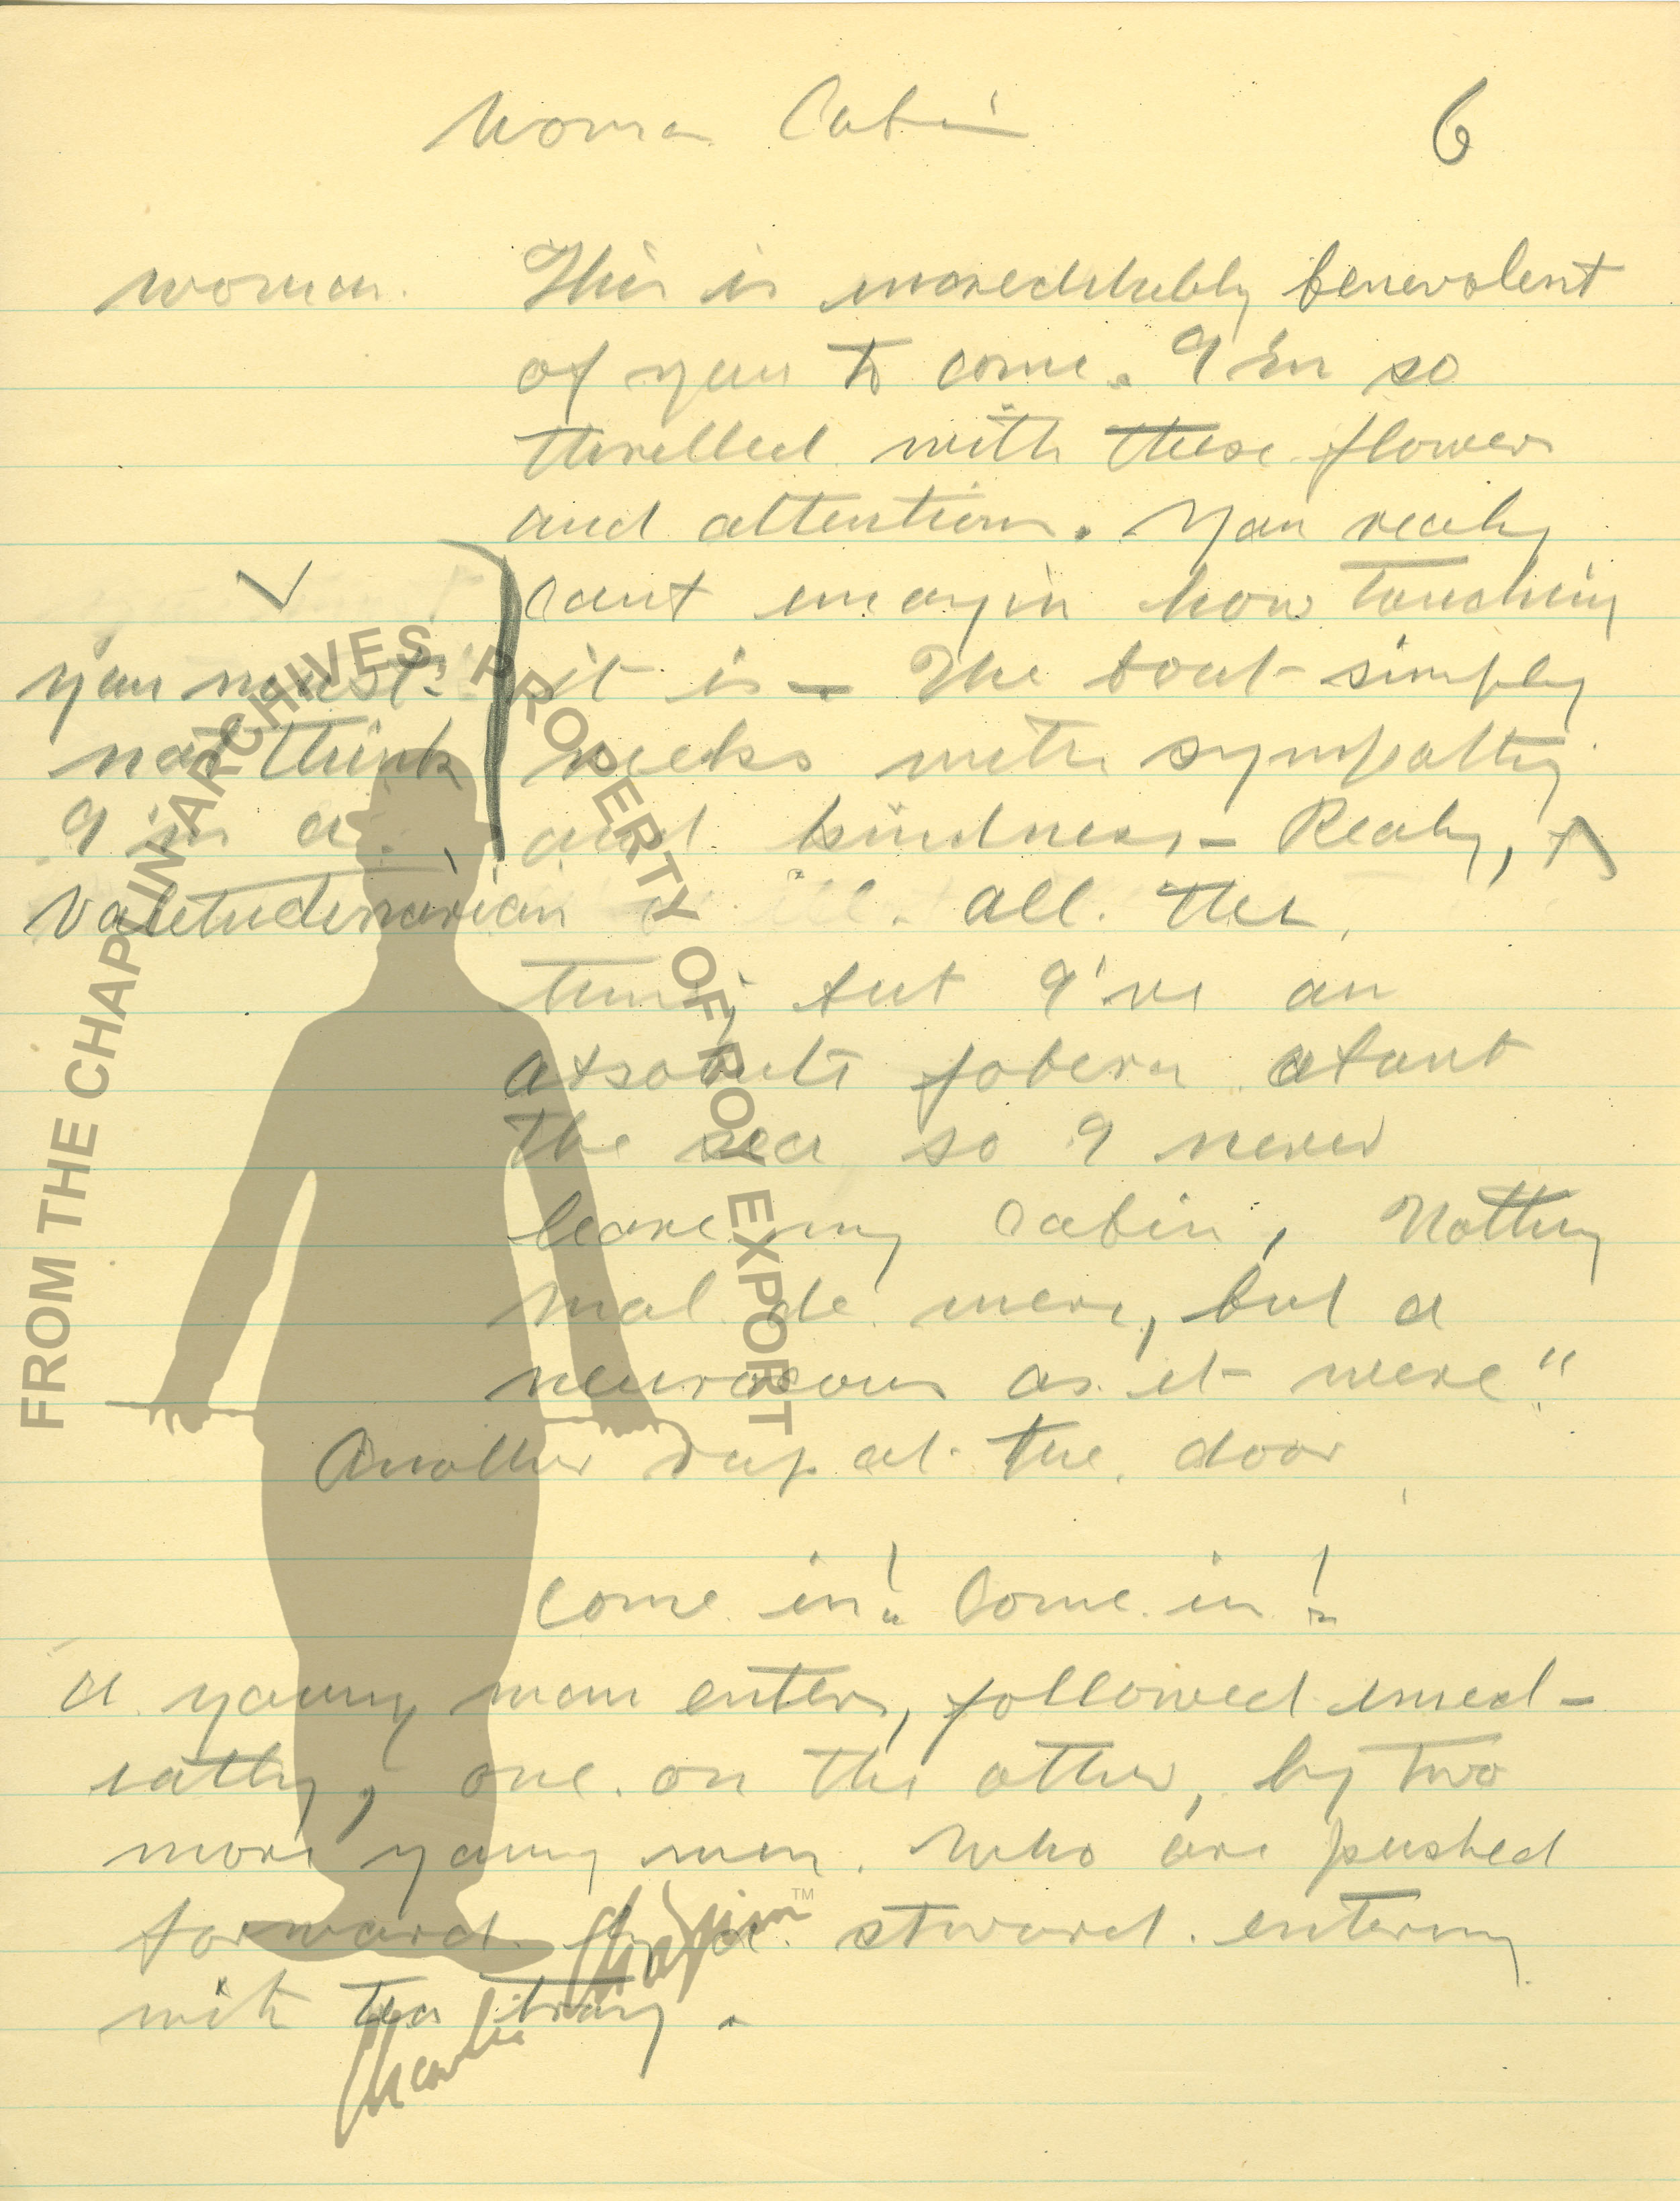 Woman Cabin
6
woman. This is incredulably benevolent
of you to come. I'm so
thrilled with these flowers
and attention. You realy
cant imagin how touching
it is - The boat simply
reeks with sympathy
and kindness - Realy,
you must
not think
I'm a
valetudinarian
all the
time, but I've an
absolute about
the sea so I never
leave my cabin, Nothing
mal de mere, but a
as it were"
Another rap at the door
Come in! Come in!
a young man enters, followed imed-
iatly, one on the other, by two
more young men. who are pushed
forward by a stward. entering
with tea tray.
FROM THE CHAPLIN ARCHIVES PROPERTY OF ROY EXPORT
Charlie Chaplin TM